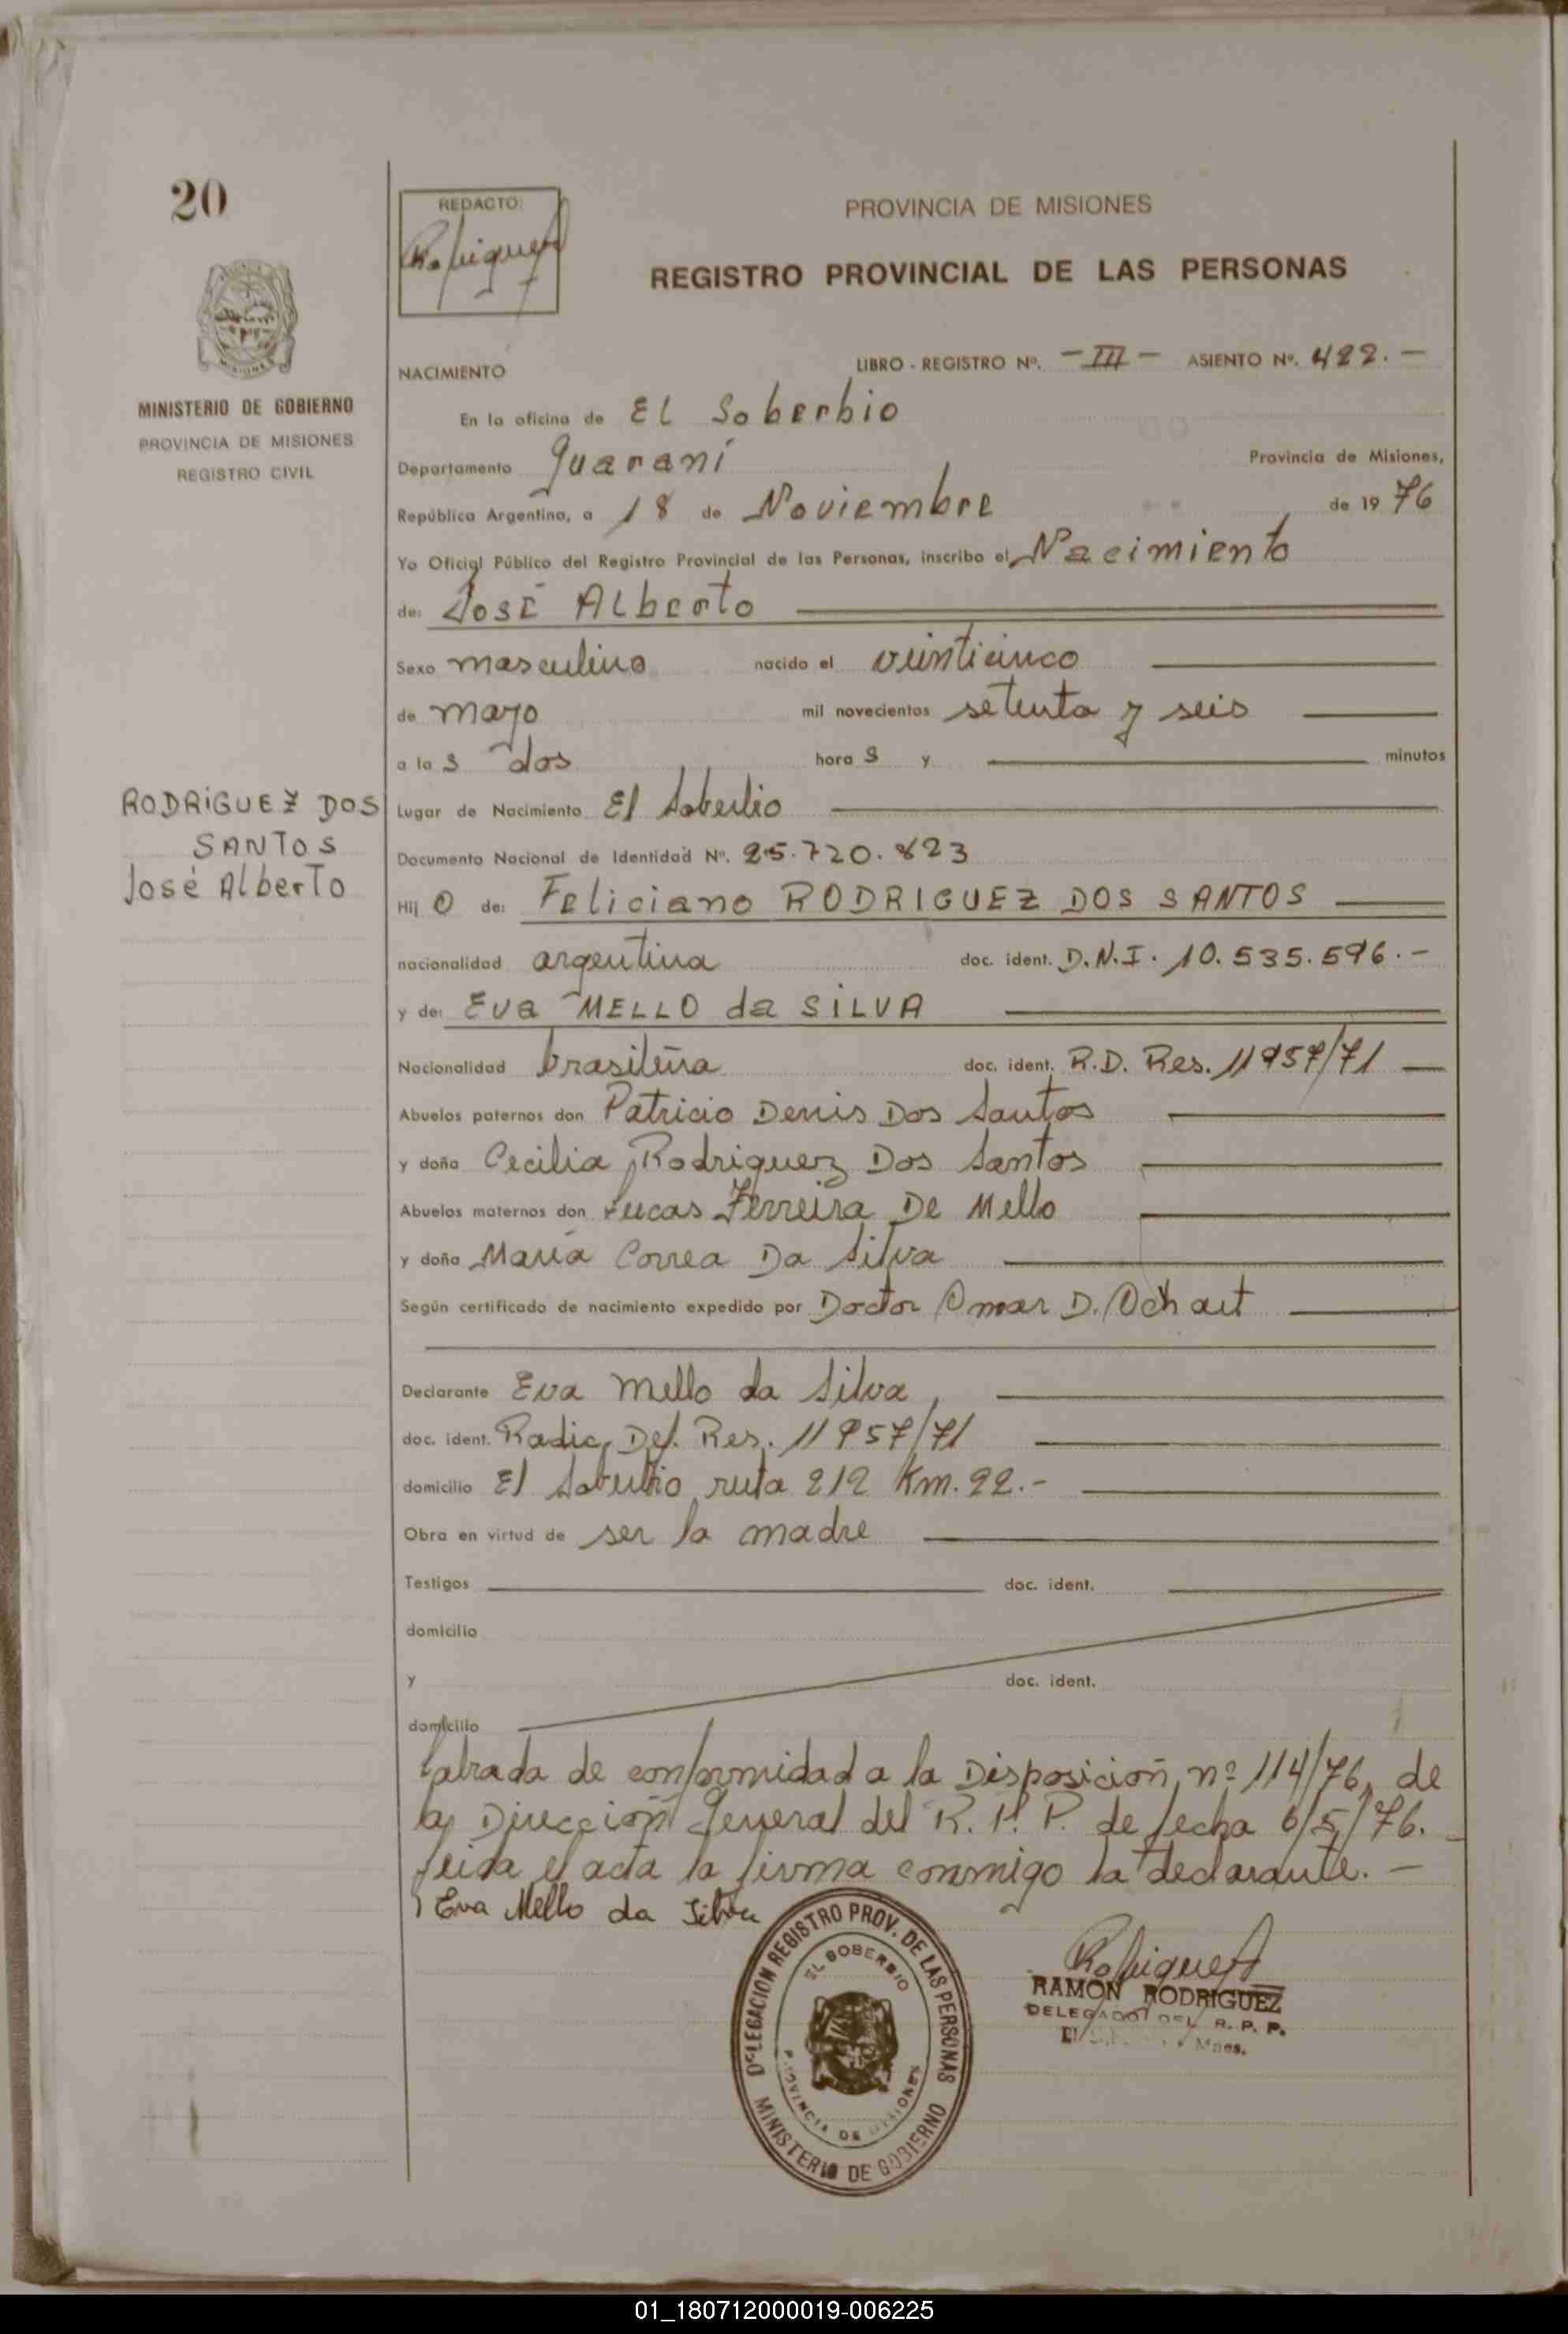 20
REDACTO:
Rodriguez
PROVINCIA DE MISIONES
REGISTRO PROVINCIAL DE LAS PERSONAS
MINISTERIO DE GOBIERNO
PROVINCIA DE MISIONES
REGISTRO CIVIL
NACIMIENTO
LIBRO - REGISTRO Nº. - III - ASIENTO Nº. 422. -
En la oficina de El Soberbio
Departamento Guaraní Provincia de Misiones,
República Argentina, a 18 de Noviembre de 19 76
Yo Oficial Público del Registro Provincial de las Personas, inscribo el Nacimiento
de: José Alberto
Sexo masculino nacido el veinticinco
de mayo mil novecientos setenta y seis
a la s dos hora s y minutos
RODRIGUEZ DOS
SANTOS
José Alberto
Lugar de Nacimiento El Soberbio
Documento Nacional de Identidad Nº. 25.720.823
Hij o de: Feliciano RODRIGUEZ DOS SANTOS
nacionalidad argentina doc. ident. D.N.I. 10.535.596.-
y de: Eva MELLO da SILVA
Nacionalidad brasileña doc. ident. R.D. Res. 11957/71
Abuelos paternos don Patricio Denis Dos Santos
y doña Cecilia Rodriguez Dos Santos
Abuelos maternos don Lucas Ferreira De Mello
y doña María Correa Da Silva
Según certificado de nacimiento expedido por Doctor Omar D.
Declarante Eva Mello da Silva,
doc. ident. Radic. Def. Res. 11957/71
domicilio El Soberbio, ruta 212 Km. 22.-
Obra en virtud de ser la madre
Testigos doc. ident.
domicilio
y doc. ident.
domicilio
Labrada de conformidad a la Disposición nº 114/76, de
la Dirección General del R. P. P. de fecha 6/5/76.
Leída el acta la firma conmigo la declarante. -
Eva Mello da Silva
DELEGACION REGISTRO PROV. DE LAS PERSONAS
EL SOBERBIO
PROVINCIA DE MISIONES
MINISTERIO DE GOBIERNO
Rodriguez
RAMON RODRIGUEZ
DELEGADO DEL R. P. P.
Mnes.
01_180712000019-006225